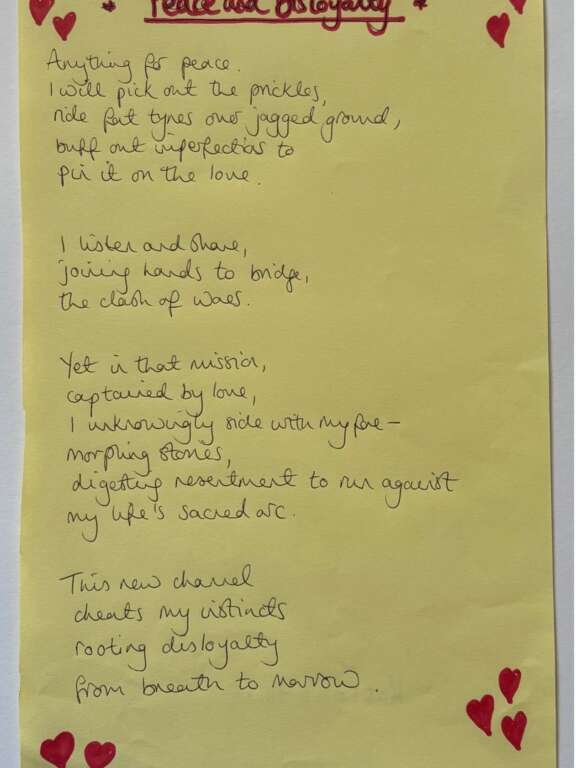 * Peace and Disloyalty *
Anything for peace.
I will pick out the prickles,
ride fat tyres over jagged ground,
buff out imperfections to
pin it on the love.
I listen and share,
joining hands to bridge,
the clash of woes.
Yet in that mission,
captained by love,
I unknowingly side with my foe -
morphing stories,
digesting resentment to run against
my life's sacred arc.
This new channel
cheats my instincts
rooting disloyalty
from breath to marrow.